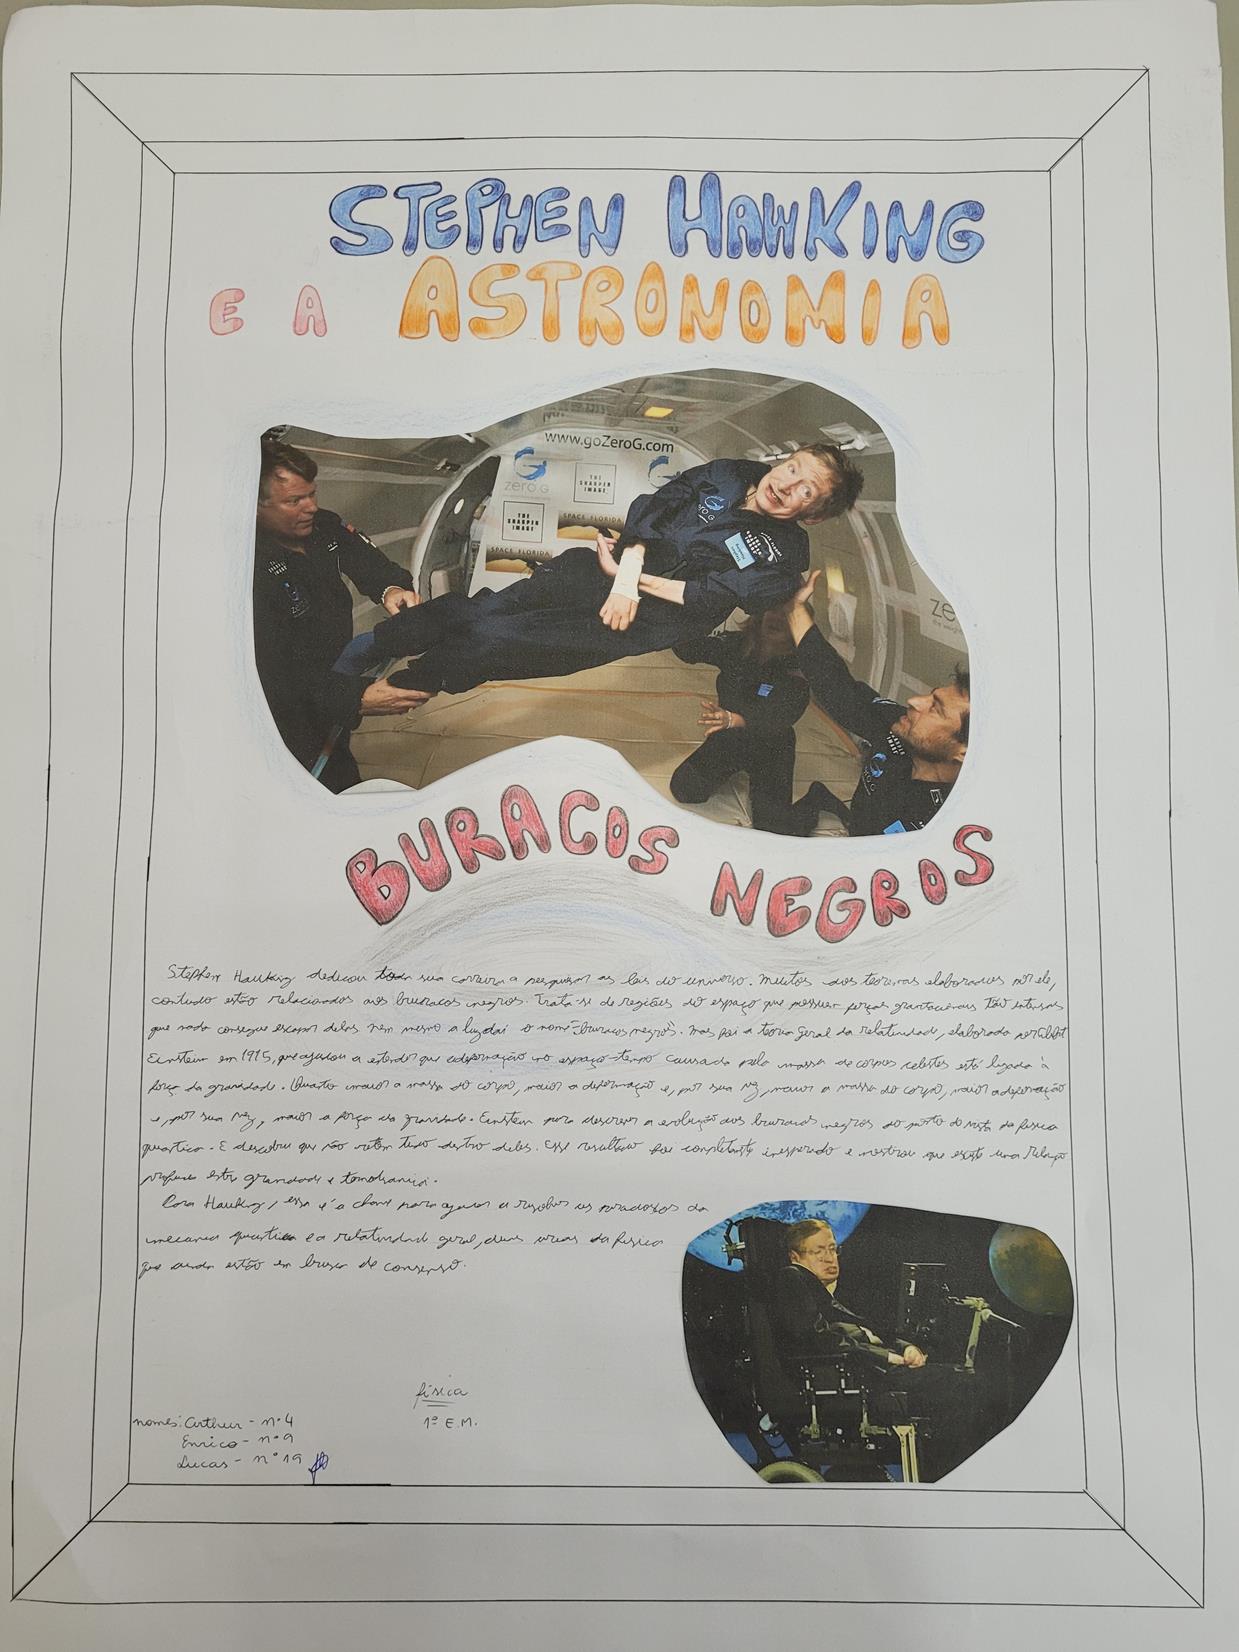 STEPHEN HAWKING
E A ASTRONOMIA
www.goZeroG.com
zero G
THE SHARPER IMAGE
THE SHARPER IMAGE
SPACE FLORIDA
SPACE FLORIDA
BURACOS NEGROS
Stephen Hawking dedicou toda sua carreira a pesquisar as leis do universo. Muitos dos teoremas elaborados por ele,
contudo estão relacionados aos buracos negros. Trata-se de regiões do espaço que possuem forças gravitacionais tão intensas
que nada consegue escapar delas nem mesmo a luz daí o nome "buracos negros". Mas foi a teoria geral da relatividade, elaborada por Albert
Einstein em 1915, que ajudou a entender que a deformação no espaço-tempo causada pela massa de corpos celestes está ligada à
força da gravidade. Quanto maior a massa do corpo, maior a deformação e, por sua vez, maior a massa do corpo, maior a deformação
e, por sua vez, maior a força da gravidade. Einstein para descrever a evolução dos buracos negros do ponto de vista da física
quântica. E descobriu que não retém tudo dentro deles. Esse resultado foi inesperado e mostrou que existe uma relação
entre gravidade e
Para Hawking, essa é a chave para ajudar a resolver os paradoxos da
mecanica quantica e a relatividade geral, duas areas da física
que ainda estão em busca de consenso.
física
1º E.M.
nomes: Arthur - nº 4
Enrico - nº 9
Lucas - nº 19